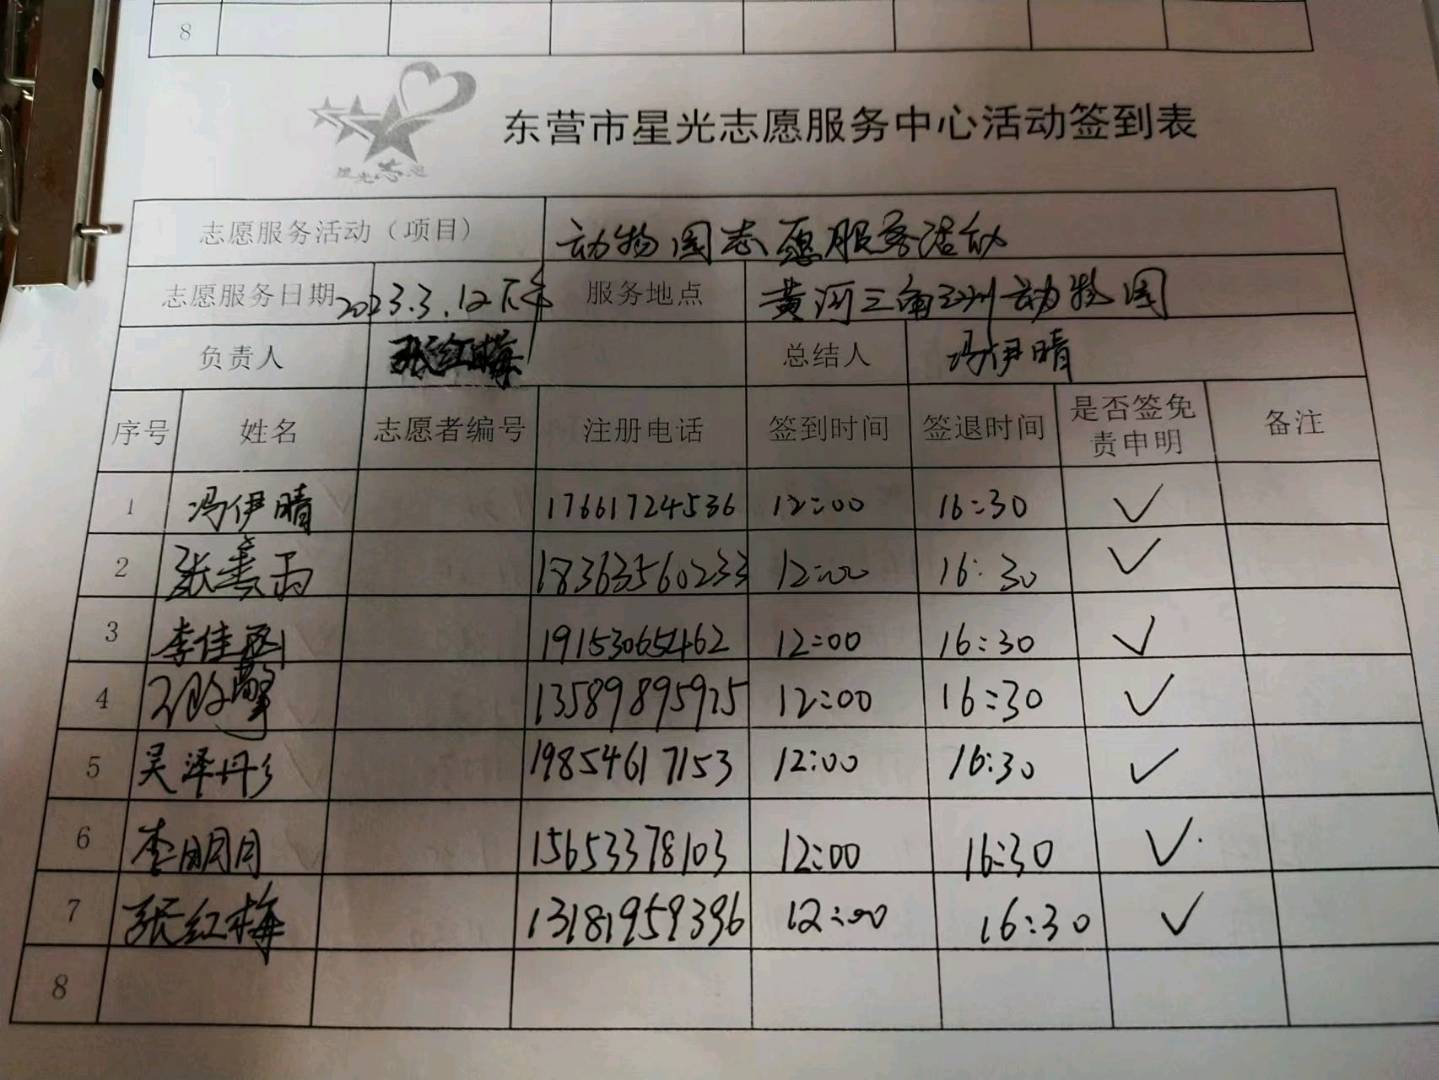 8
星光志愿
东营市星光志愿服务中心活动签到表
志愿服务活动（项目） 动物园志愿服务活动
志愿服务日期 2023.3.12下午 服务地点 黄河三角洲动物园
负责人 张红梅 总结人 冯伊晴
序号 姓名 志愿者编号 注册电话 签到时间 签退时间 是否签免责申明 备注
1 冯伊晴 17661724536 12:00 16:30 ✓
2 张善雨 18363560233 12:00 16:30 ✓
3 李佳 19153065462 12:00 16:30 ✓
4 13589895925 12:00 16:30 ✓
5 吴泽彤 19854617153 12:00 16:30 ✓
6 李明月 15653378103 12:00 16:30 ✓
7 张红梅 13181959396 12:00 16:30 ✓
8